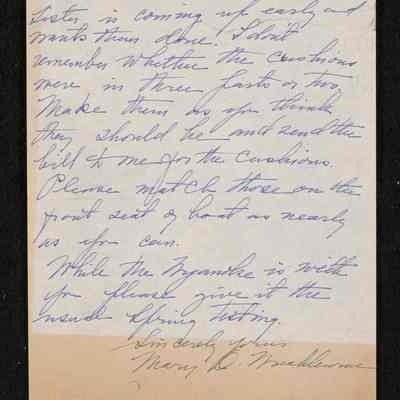 Sister is coming up early and
wants them done. I don't
remember whether the cushions
were in three parts or two.
Make them as you think
they should be and send the
bill to me for the cushions.
Please match those on the
front seat of boat as nearly
as you can.
While the Wyandke is with
you please give it the
usual Spring testing.
Sincerely yours
Mary D.